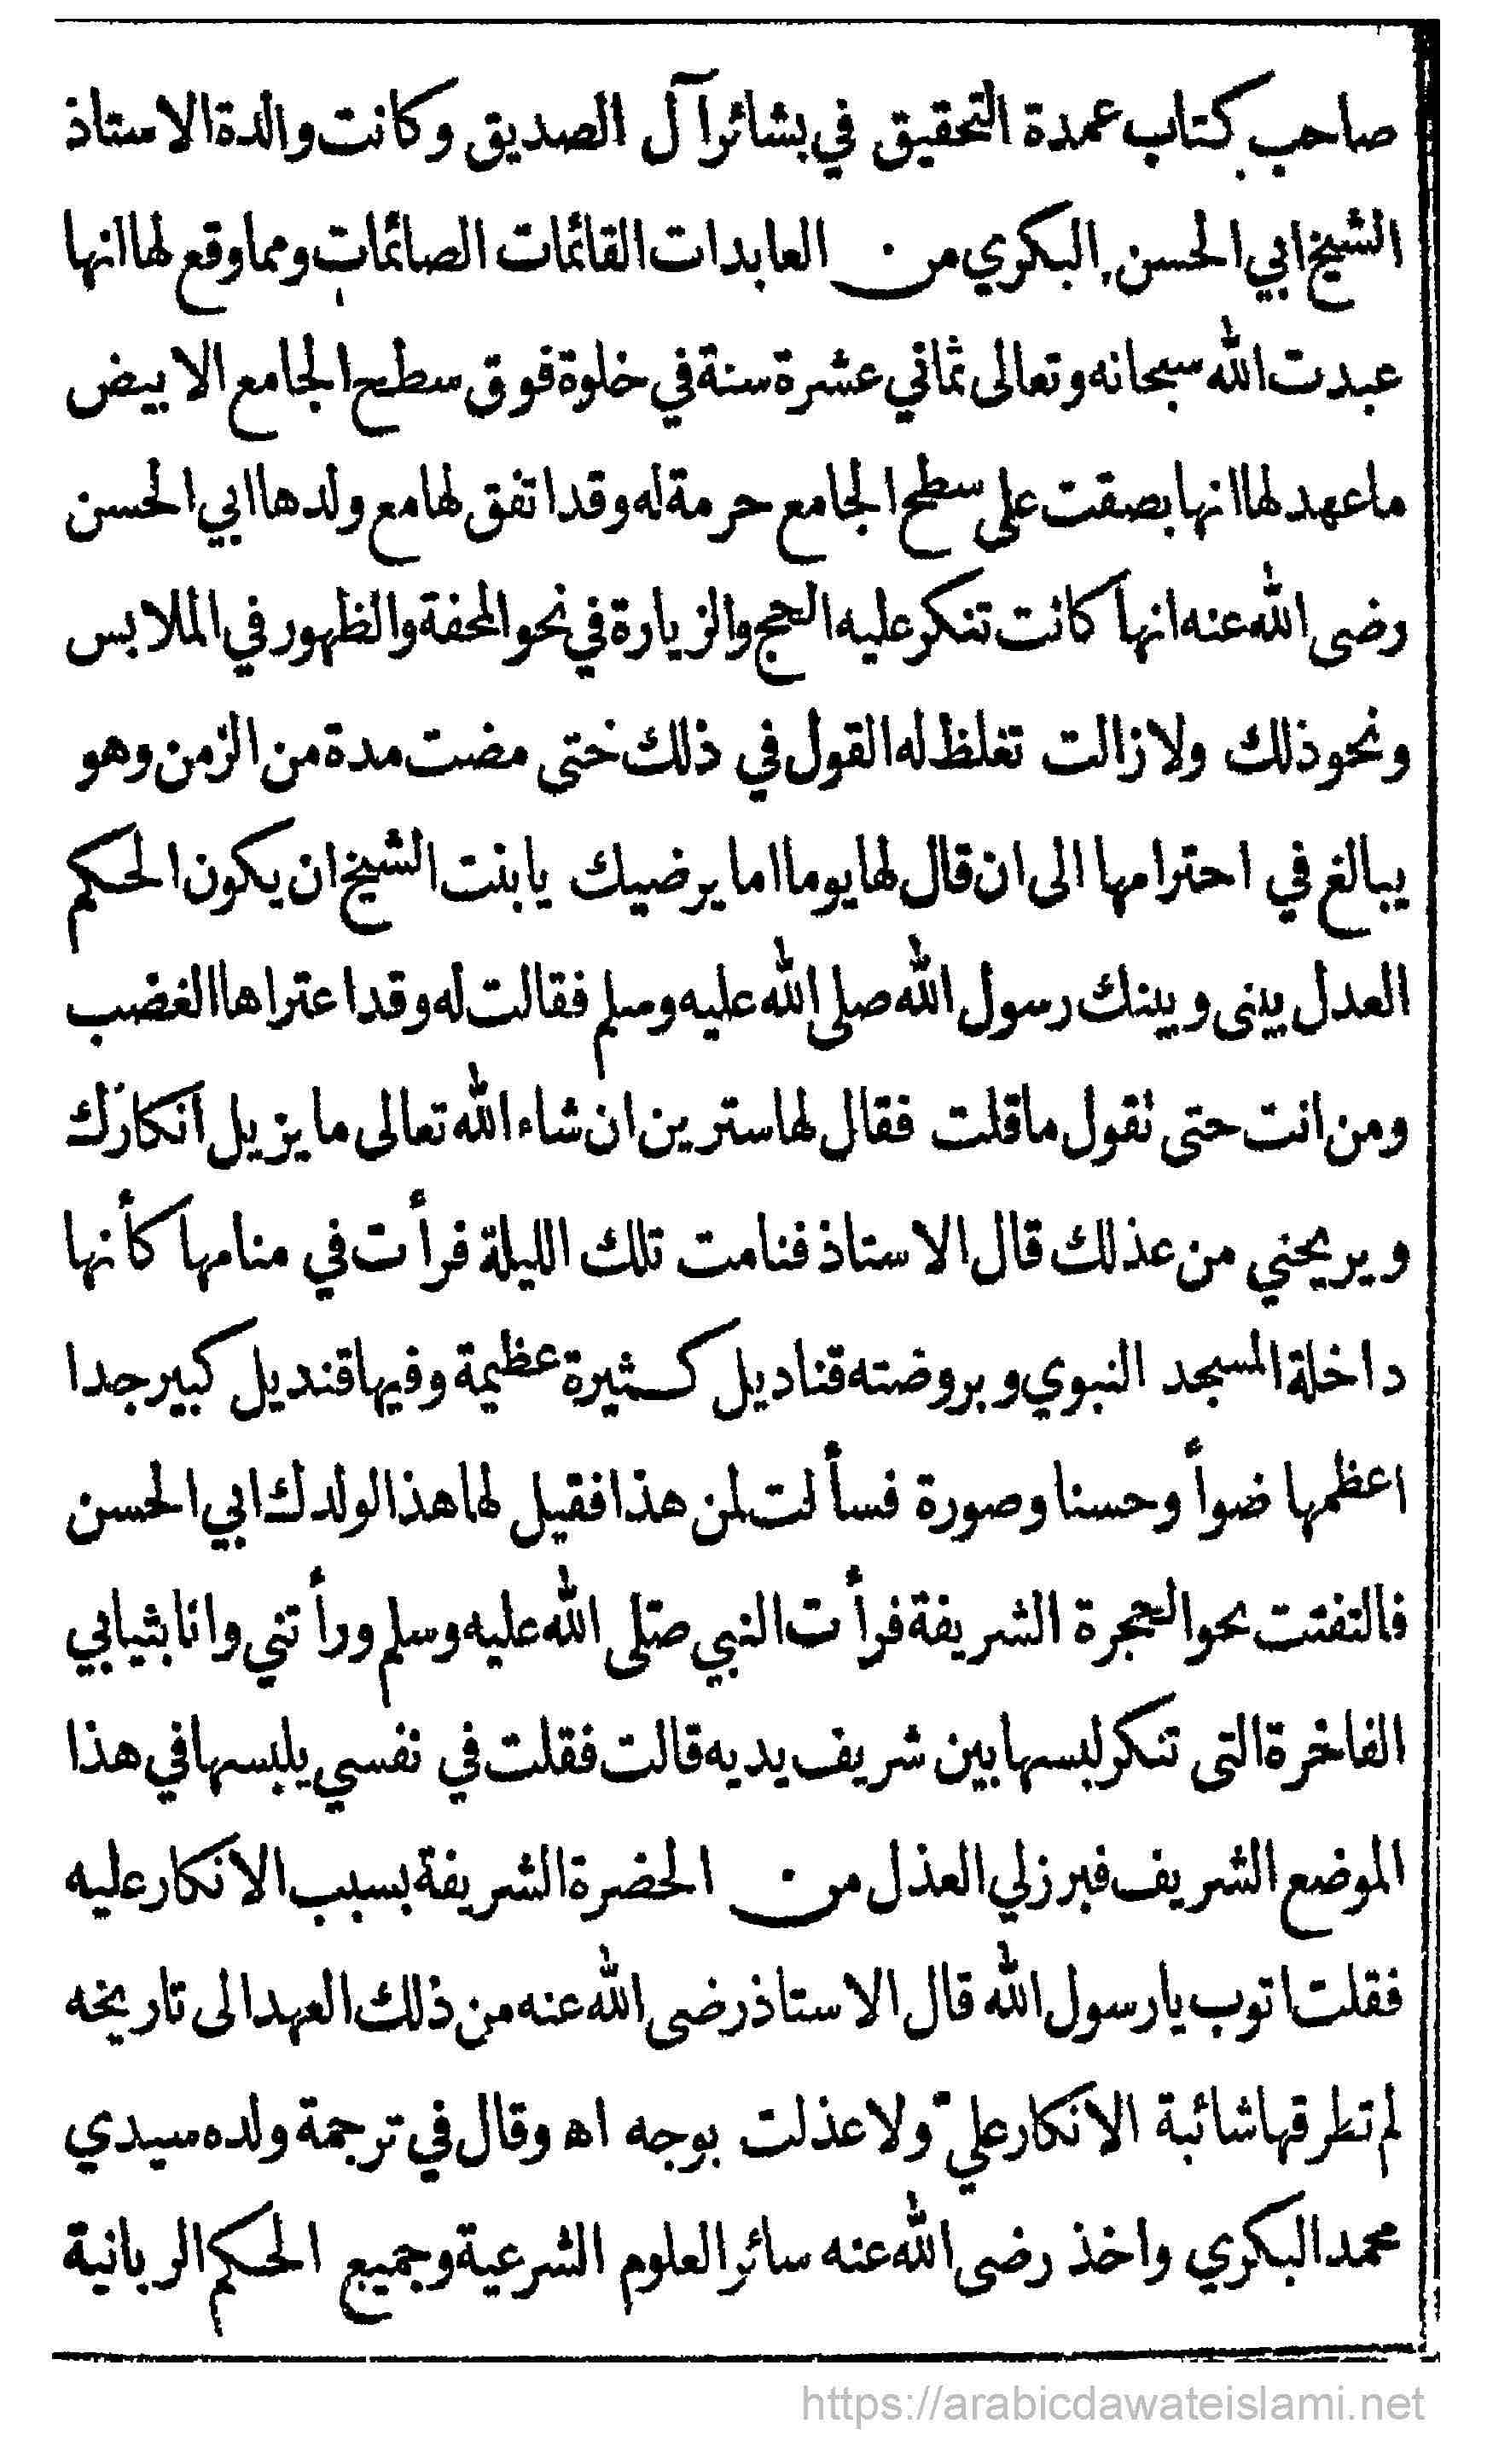 صاحب كتاب عمدة التحقيق في بشائر آل الصديق وكانت والدة الاستاذ
الشيخ ابي الحسن البكري من العابدات القائمات الصائمات ومما وقع لها انها
عبدت الله سبحانه وتعالى ثماني عشرة سنة في خلوة فوق سطح الجامع الابيض
ما عهد لها انها بصقت على سطح الجامع حرمة له وقد اتفق لها مع ولدها ابي الحسن
رضى الله عنه انها كانت تنكر عليه الحج والزيارة في نحو المحفة والظهور في الملابس
ونحو ذلك ولا زالت تغلظ له القول في ذلك حتى مضت مدة من الزمن وهو
يبالغ في احترامها الى ان قال لها يوما اما يرضيك يا بنت الشيخ ان يكون الحكم
العدل بينى وبينك رسول الله صلى الله عليه وسلم فقالت له وقد اعتراها الغضب
ومن انت حتى تقول ما قلت فقال لها سترين ان شاء الله تعالى ما يزيل انكارك
ويريحني من عذلك قال الاستاذ فنامت تلك الليلة فرأت في منامها كأنها
داخلة المسجد النبوي وبروضته قناديل كثيرة عظيمة وفيها قنديل كبير جدا
اعظمها ضوأ وحسنا وصورة فسألت لمن هذا فقيل لها هذا لولدك ابي الحسن
فالتفتت نحو الحجرة الشريفة فرأت النبي صلى الله عليه وسلم ورأتني وانا بثيابي
الفاخرة التى تنكر لبسها بين شريف يديه قالت فقلت في نفسي يلبسها في هذا
الموضع الشريف فبرز لي العذل من الحضرة الشريفة بسبب الانكار عليه
فقلت اتوب يا رسول الله قال الاستاذ رضى الله عنه من ذلك العهد الى تاريخه
لم تطرقها شائبة الانكار علي ولا عذلت بوجه اه وقال في ترجمة ولده سيدي
محمد البكري واخذ رضى الله عنه سائر العلوم الشرعية وجميع الحكم الربانية
https://arabicdawateislami.net